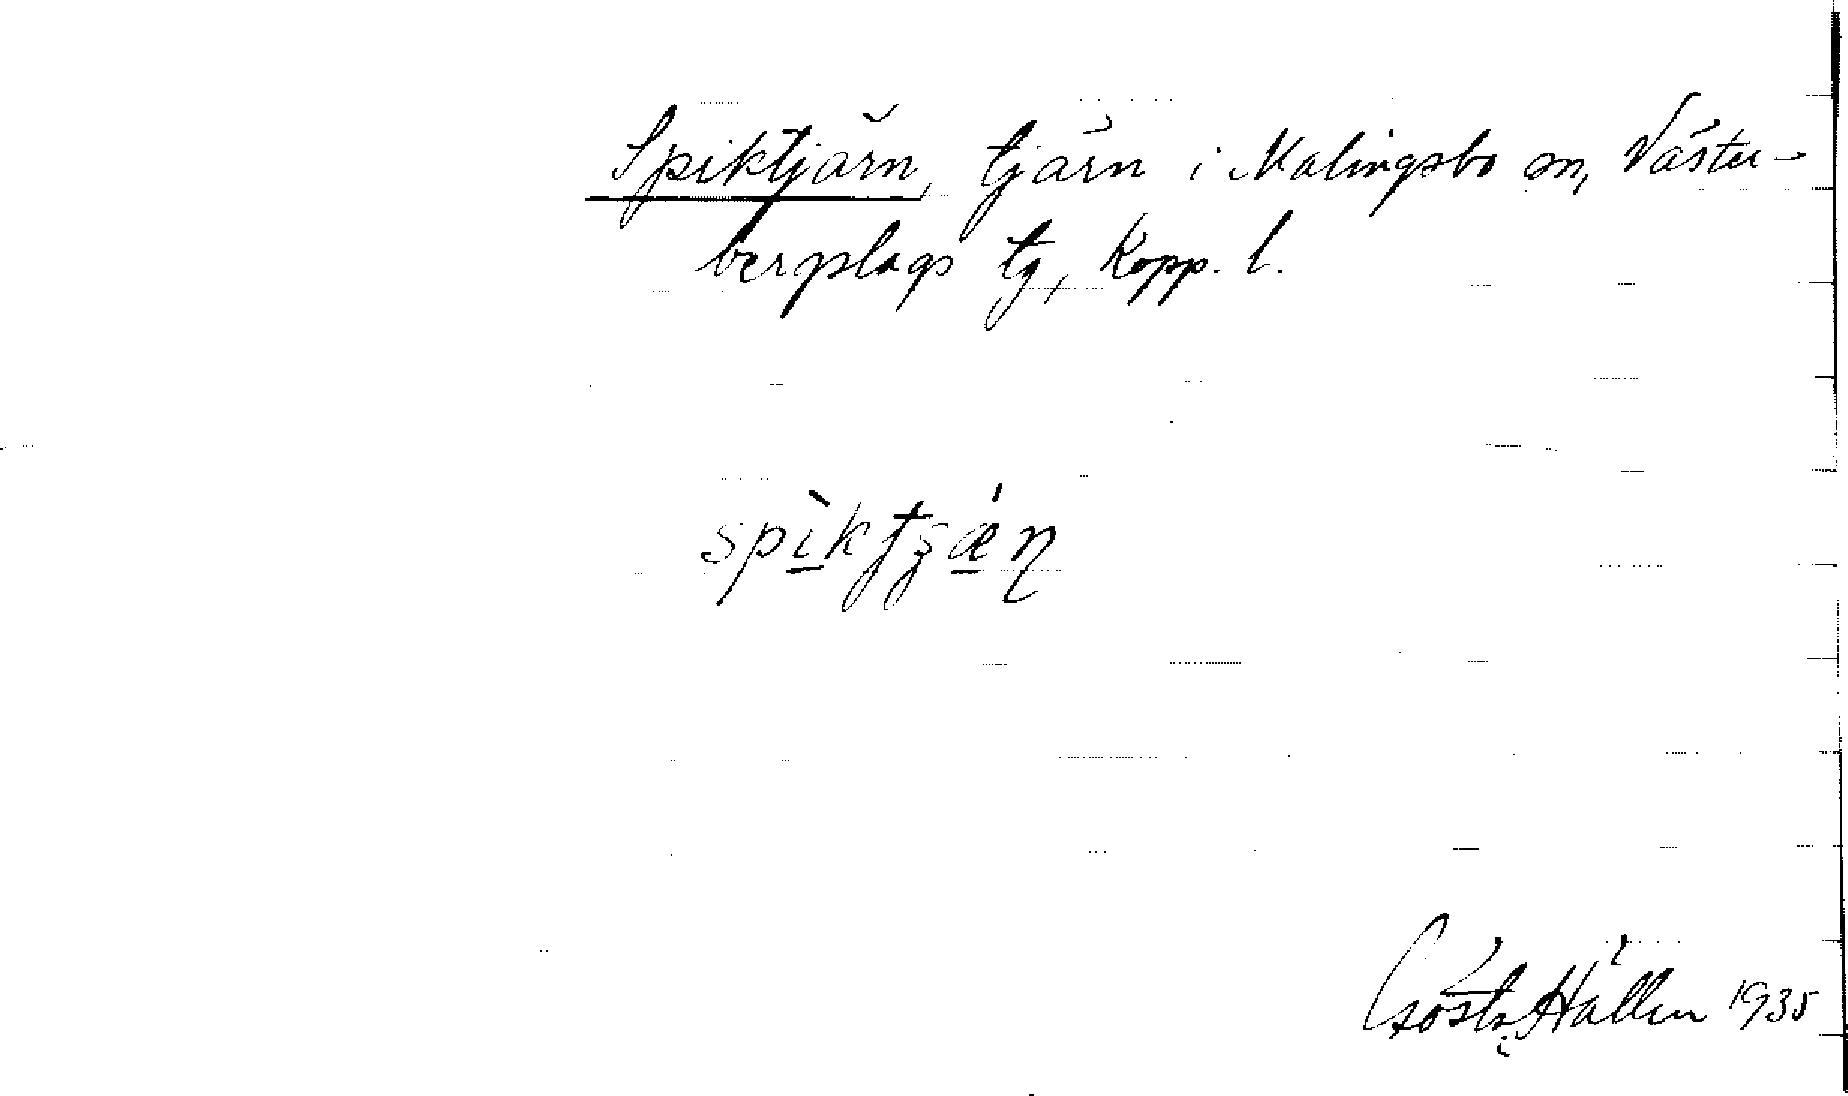 Spiktjärn, tjärn i Malingsbo sn, Väster-
bergslags tg, Kopp. l.
spìktʂǽn
Gösta Hällen 1935